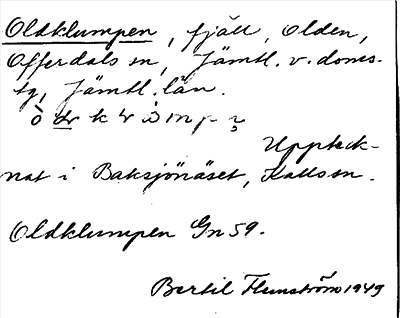 Oldklumpen, fjäll, Olden,
Offerdals sn, Jämtl. v. doms.
tg, Jämtl. län.
Uppteck-
nat i Baksjönäset, Kalls sn.
Oldklumpen Gn 59.
Bertil Flemström 1949